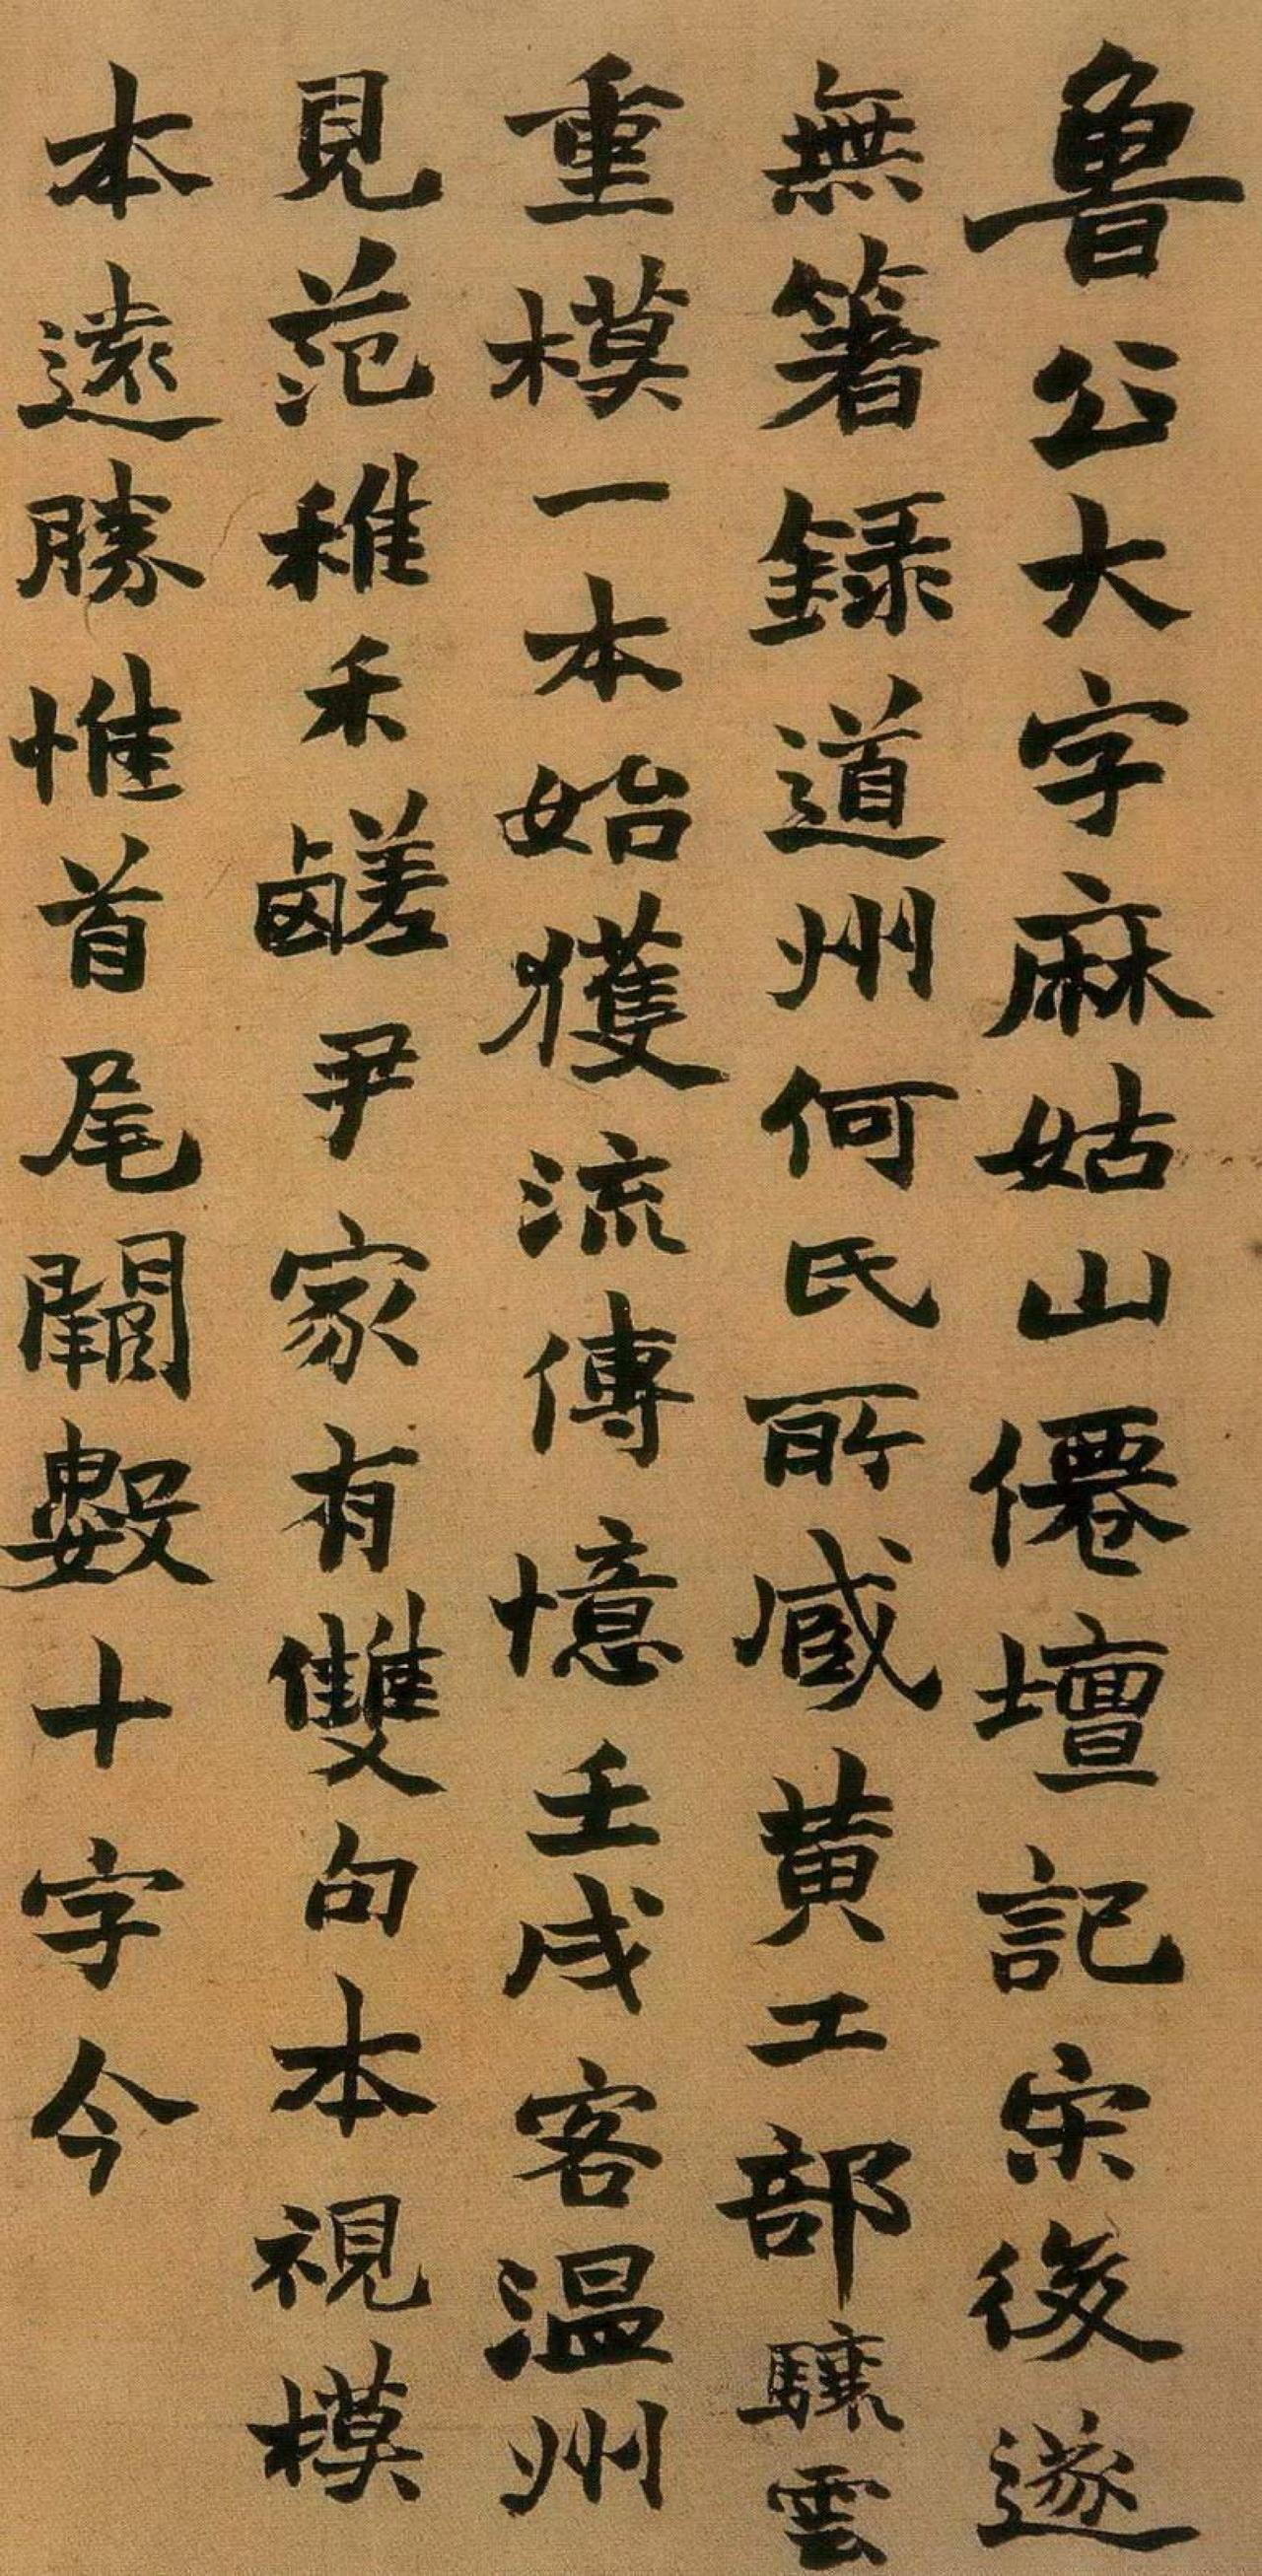 魯公大字麻姑山僊壇記宋後遂
無箸録道州何氏所臧黄工部驤雲
重模一本始獲流傳憶壬戌客温州
見范稚禾鹺尹家有雙句本視模
本遠勝惟首尾闕數十字今